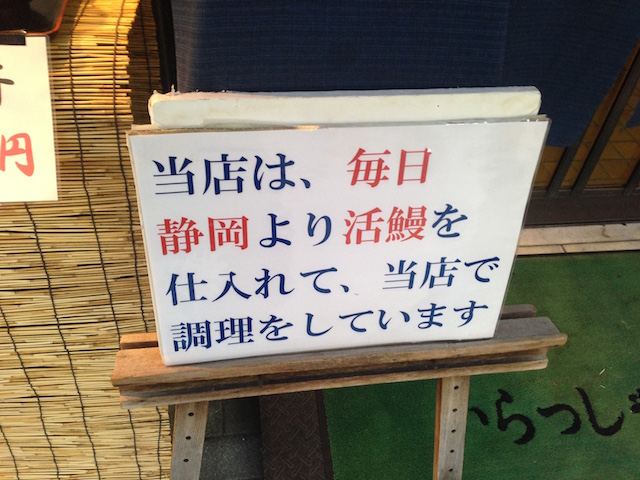 当店は、毎日
静岡より活鰻を
仕入れて、当店で
調理をしています
円
いらっしゃ